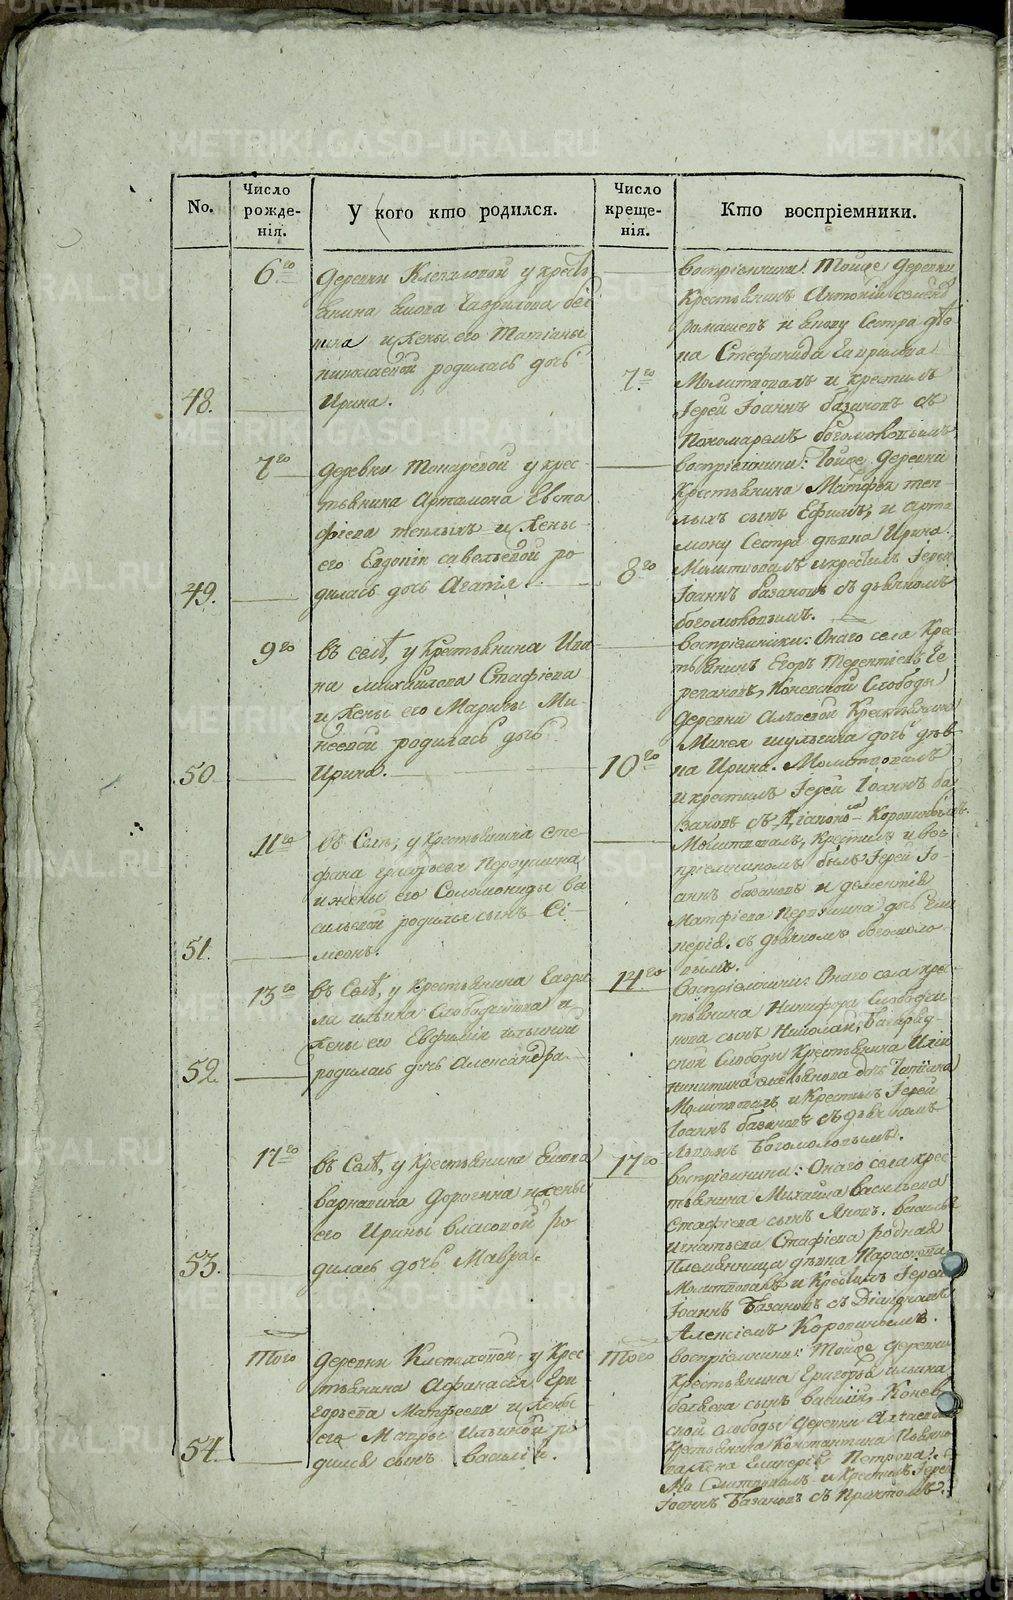 METRIKI.GASO-URAL.RU
No.
Число рожде-нія.
У кого кто родился.
Число креще-нія.
Кто воспріемники.
48.
6го
деревни Клепаловой у крест
янина
Гаврилова
и жены его Татіаны
николаевой родилась дочь
Ирина.
7го
воспріемники: Тойже деревни
Крестьянинъ Антоній Семеновъ
ромашевъ и Сестра дѣв
ка Стефанида Гаврилова
Молитвовалъ и крестилъ
Іерей Іоаннъ базановъ съ
Пономаремъ богомоловымъ
49.
7го
деревни Токаревой у крес
тьянина Артамона Евста
фіева теплыхъ и жены
его Евдокіи савельевой ро
дилась дочь Агафія
8го
воспріемники: Тойже деревни
Крестьянина Матфея теп
лыхъ сынъ Ефимъ, и Арта
мону Сестра дѣвка Ирина.
Молитвовалъ и крестилъ Іерей
Іоаннъ базановъ съ дьячкомъ
богомоловымъ.
50.
9го
въ селѣ, у Крестьянина Ива
на михайлова Стафіева
и жены его Марины Ми
неевой родилась дочь
Ирина.
10го
воспріемники: Онаго села Кре
стьянинъ Егоръ Терентіевъ Че
репановъ, Коневской Слободы
деревни Алтаевой Крестьянина
Минея шульгина дочь дѣв
ка Ирина. Молитвовалъ
и крестилъ Іерей Іоаннъ ба
зановъ съ Діакономъ Коровинымъ.
51.
11го
въ Селѣ, у Крестьянина Сте
фана Первушина
и жены его Соломониды ва
сильевой родился сынъ Сі
меонъ.
Молитвовалъ, Крестилъ и вос
пріемникомъ былъ Іерей Іо
аннъ базановъ и дементія
Матфіева Первушина дочь Глик
керія. съ дьячкомъ богомоло
вымъ.
52.
13го
въ Селѣ, у крестьянина Гаври
ла ильина Слободчикова и
жены его Евфиміи ильиной
родилась дочь Александра.
14го
воспріемники: Онаго села крес
тьянина Никифора Слободчи
кова сынъ Николай, Багаряд
ской Слободы Крестьянина Иліи
никитина дочь Татіана
Молитвовалъ и Крестилъ Іерей
Іоаннъ базановъ съ дьячкомъ
Богомоловымъ.
53.
17го
въ Селѣ, у Крестьянина Якова
варнавина дорогина и жены
его Ирины власовой ро
дилась дочь Мавра.
17го
воспріемники: Онаго села крес
тьянина Михайла васильева
Стафіева сынъ Яковъ. василья
Игнатьева Стафіева родная
племянница дѣвка Параскева
Молитвовалъ и Крестилъ Іерей
Іоаннъ Базановъ съ Діакономъ
Алексіемъ Коровинымъ.
54.
Того
деревни Клепаловой, у Крес
тьянина Афанасія Гри
горьева Матфеева и жены
его Мавры Ильиной ро
дился сынъ василій.
Того
воспріемники: Тойже деревни
Крестьянина Григорья ильина
сынъ василій, Конев
ской слободы деревни Алтаевой
Крестьянина Константина
жена Гликерія Петрова.
Молитвовалъ и Крестилъ Іерей
Іоаннъ Базановъ съ Причтомъ.